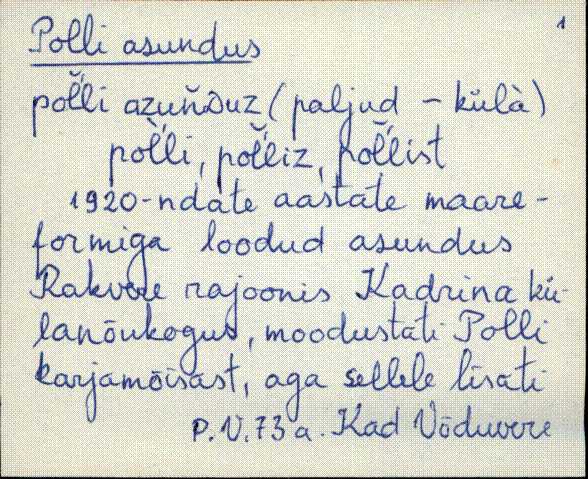 1
Polli asundus
pol̆̀li azun̆Duz (paljud – kùlà)
pol̆̀li, pol̆̀liz, pol̆̀list
1920-ndate aastate maare-
formiga loodud asundus
Rakvere rajoonis Kadrina kü-
lanõukogus, moodustati Polli
karjamõisast, aga sellele lisati
P.V. 73 a. Kad Võduvere